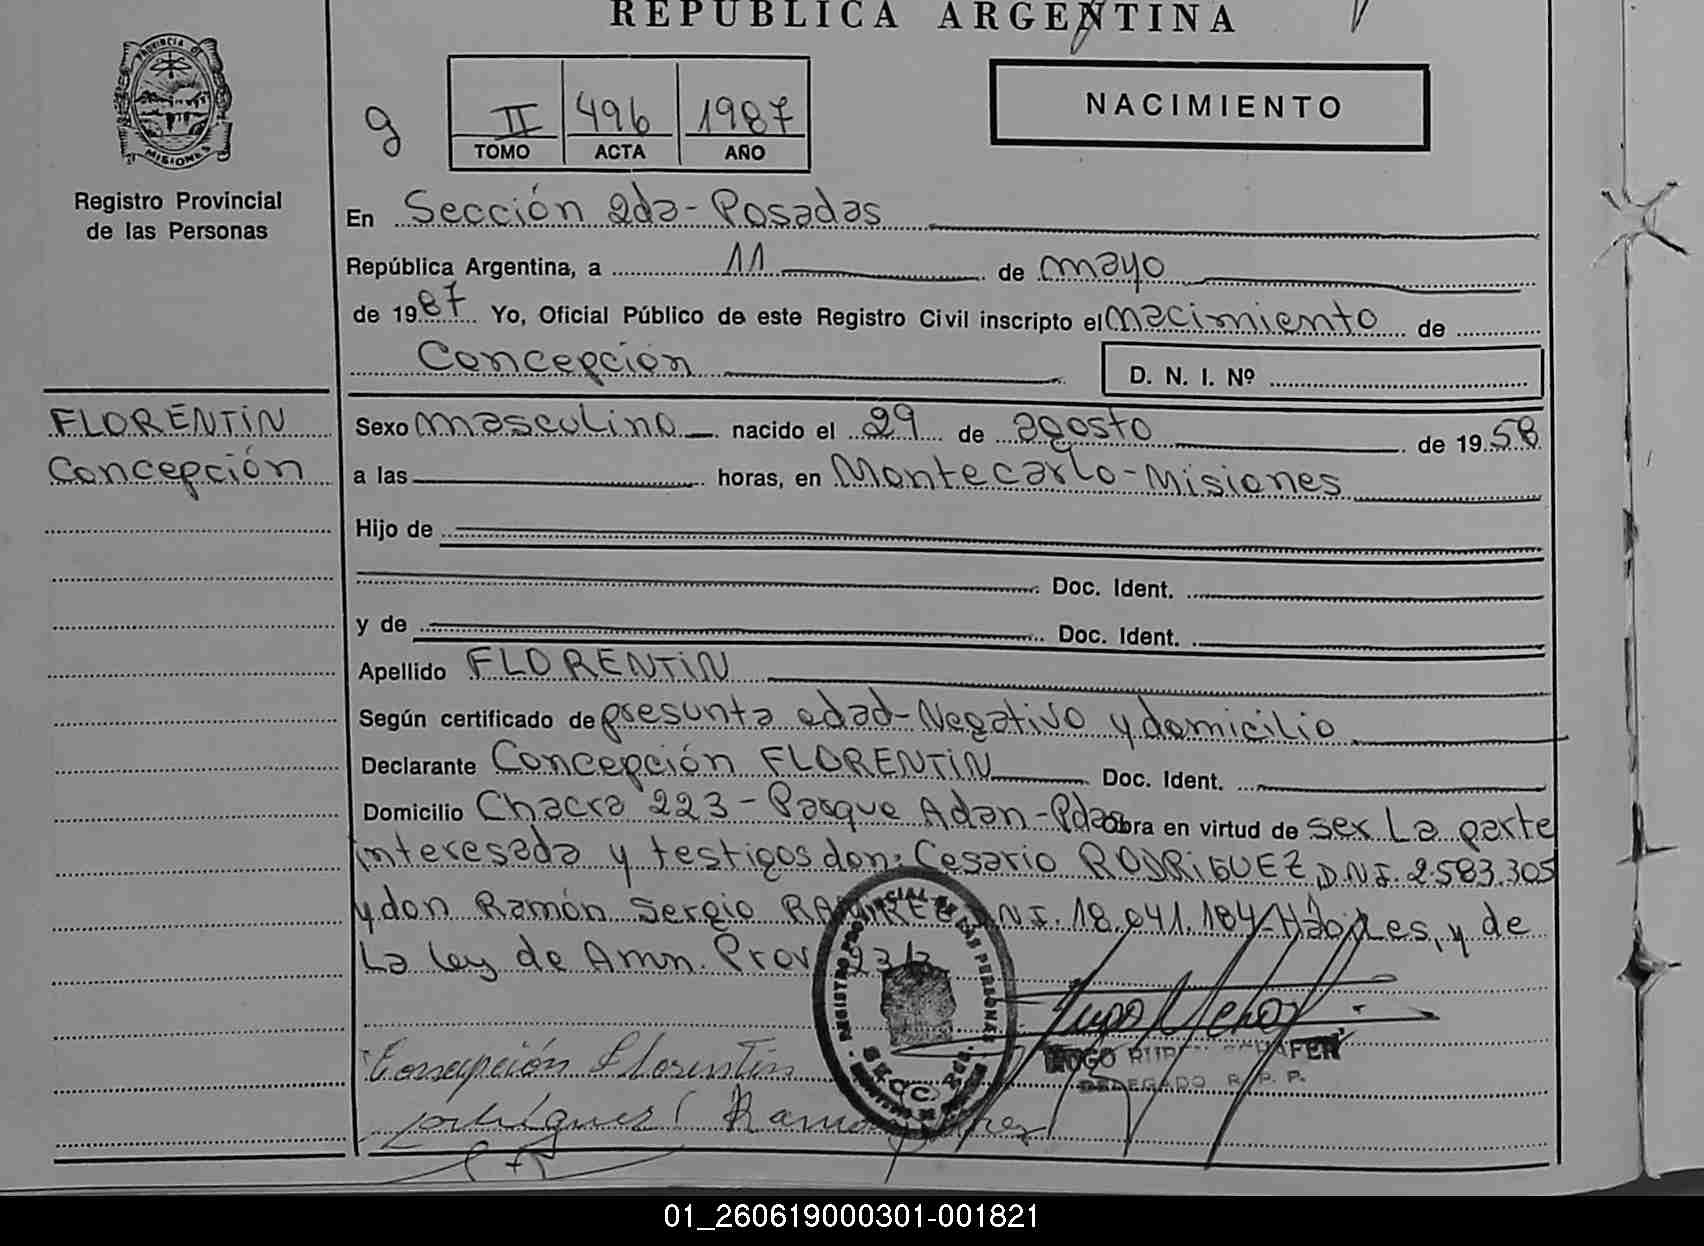 REPUBLICA ARGENTINA
PROVINCIA DE
MISIONES
g
II 496 1987
TOMO ACTA AÑO
NACIMIENTO
Registro Provincial
de las Personas
En Sección 2da-Posadas
República Argentina, a 11 de mayo
de 1987 Yo, Oficial Público de este Registro Civil inscripto el nacimiento de
Concepción
D. N. I. Nº
FLORENTIN
Concepción
Sexo masculino nacido el 29 de agosto de 1958
a las horas, en Montecarlo-Misiones
Hijo de
Doc. Ident.
y de Doc. Ident.
Apellido FLORENTIN
Según certificado de presunta edad-Negativo y domicilio
Declarante Concepción FLORENTIN Doc. Ident.
Domicilio Chacra 223-Parque Adan-Pdas Obra en virtud de ser La parte
interesada y testigos don: Cesario RODRIGUEZ D.N.I. 2.583.305
y don Ramón Sergio RAMIREZ D.N.I. 18.041.184-Hábiles, y de
La Ley de Amn. Prov.
REGISTRO PROVINCIAL DE LAS PERSONAS
SECC.
Concepción Florentin
HUGO RUBEN SCHAFER
DELEGADO R. P. P.
rodriguez Ramon
01_260619000301-001821